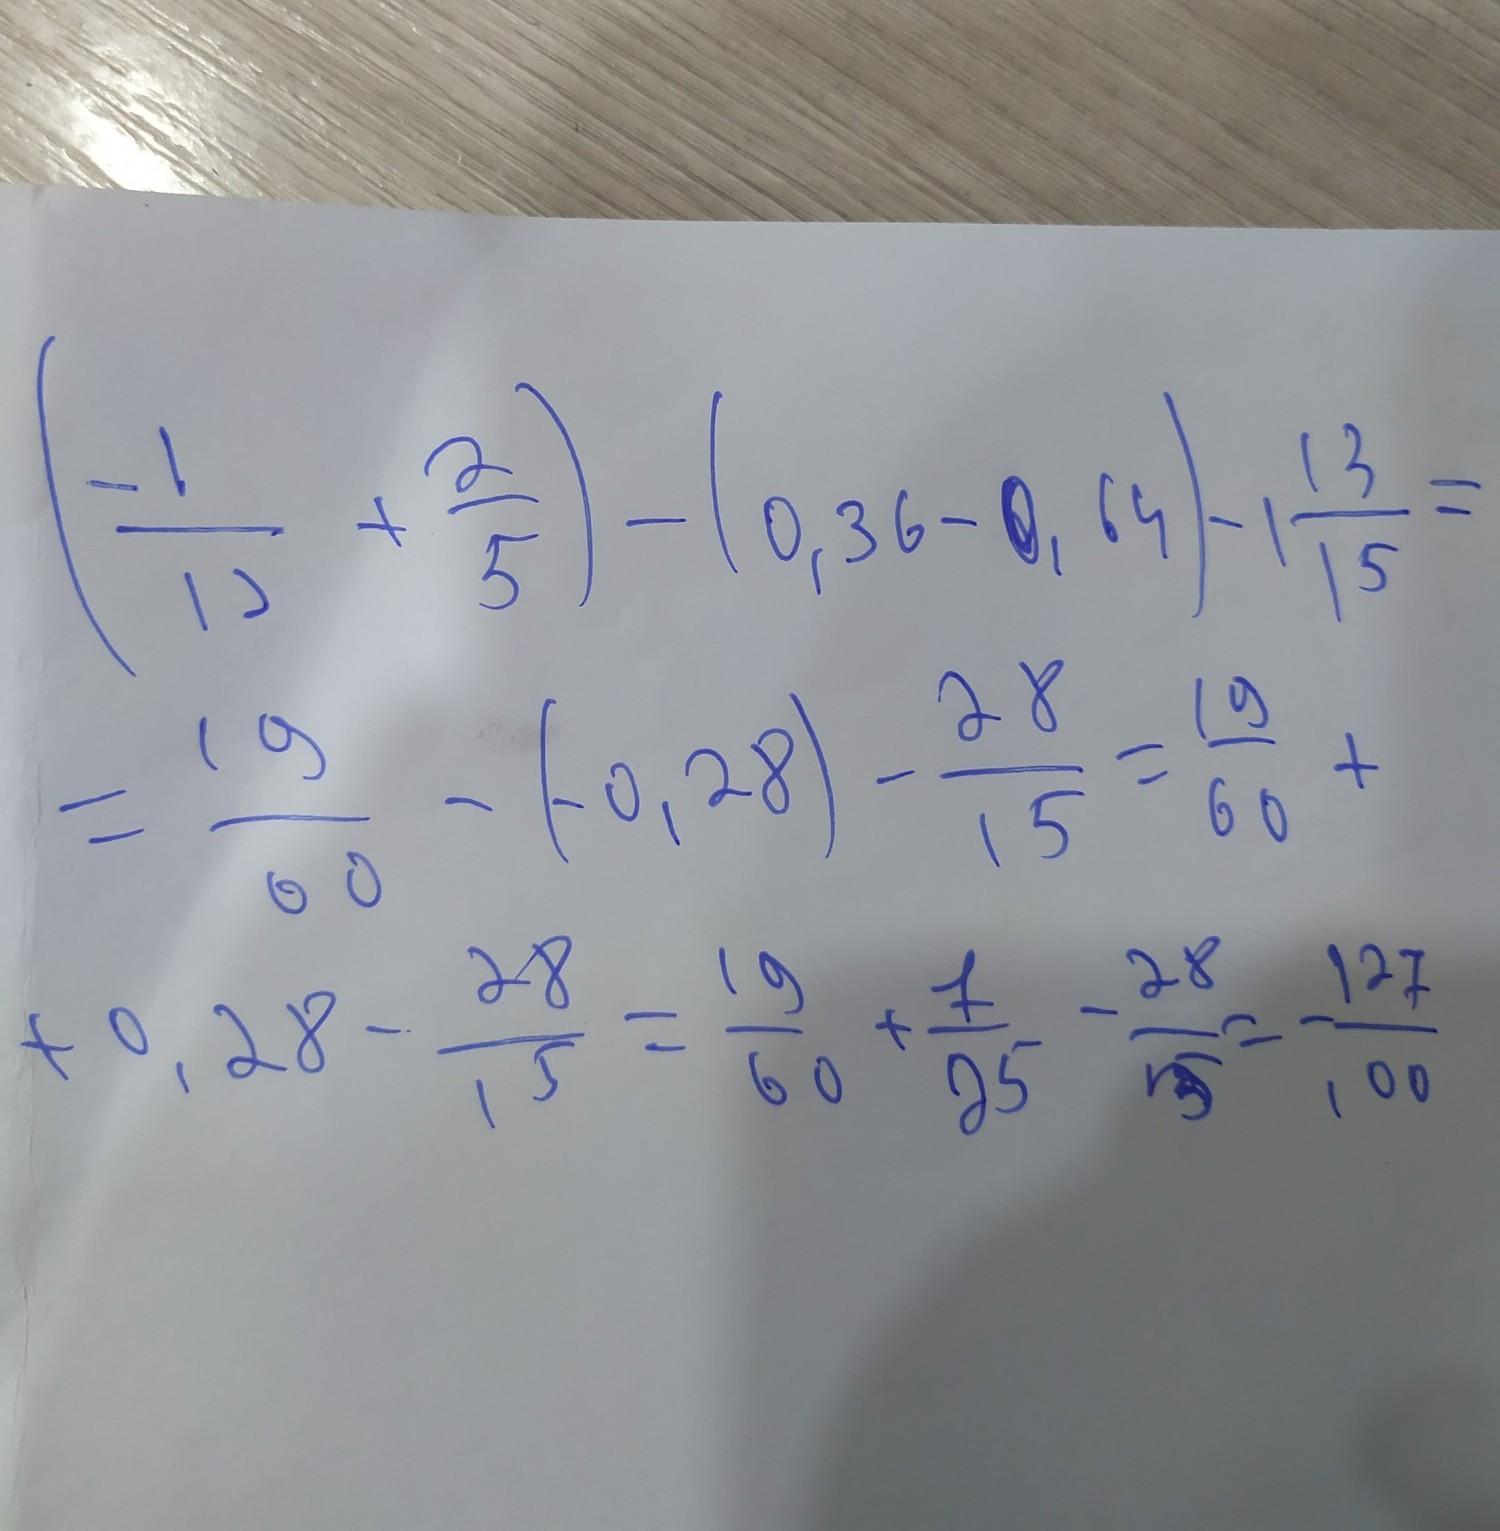 (-1/12 + 2/5) - (0,36 - 0,64) - 1 13/15 =
= 19/60 - (-0,28) - 28/15 = 19/60 +
+ 0,28 - 28/15 = 19/60 + 7/25 - 28/15 = -127/100